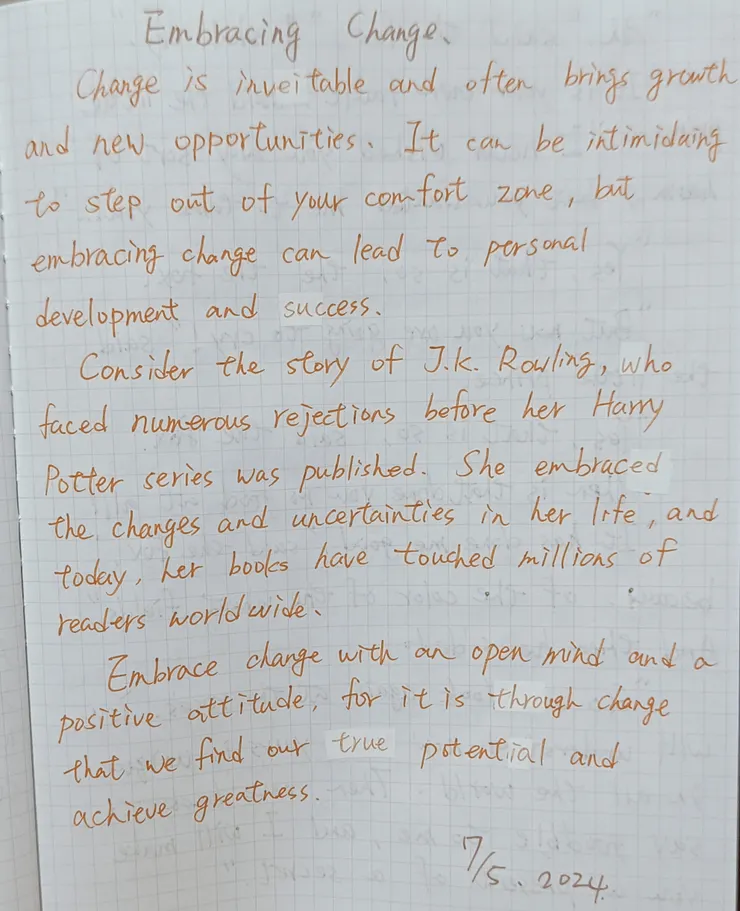 Embracing Change.
Change is inveitable and often brings growth
and new opportunities. It can be intimidaing
to step out of your comfort zone, but
embracing change can lead to personal
development and success.
Consider the story of J.K. Rowling, who
faced numerous rejections before her Harry
Potter series was published. She embraced
the changes and uncertainties in her life, and
today, her books have touched millions of
readers worldwide.
Embrace change with an open mind and a
positive attitude, for it is through change
that we find our true potential and
achieve greatness.
7/5. 2024.